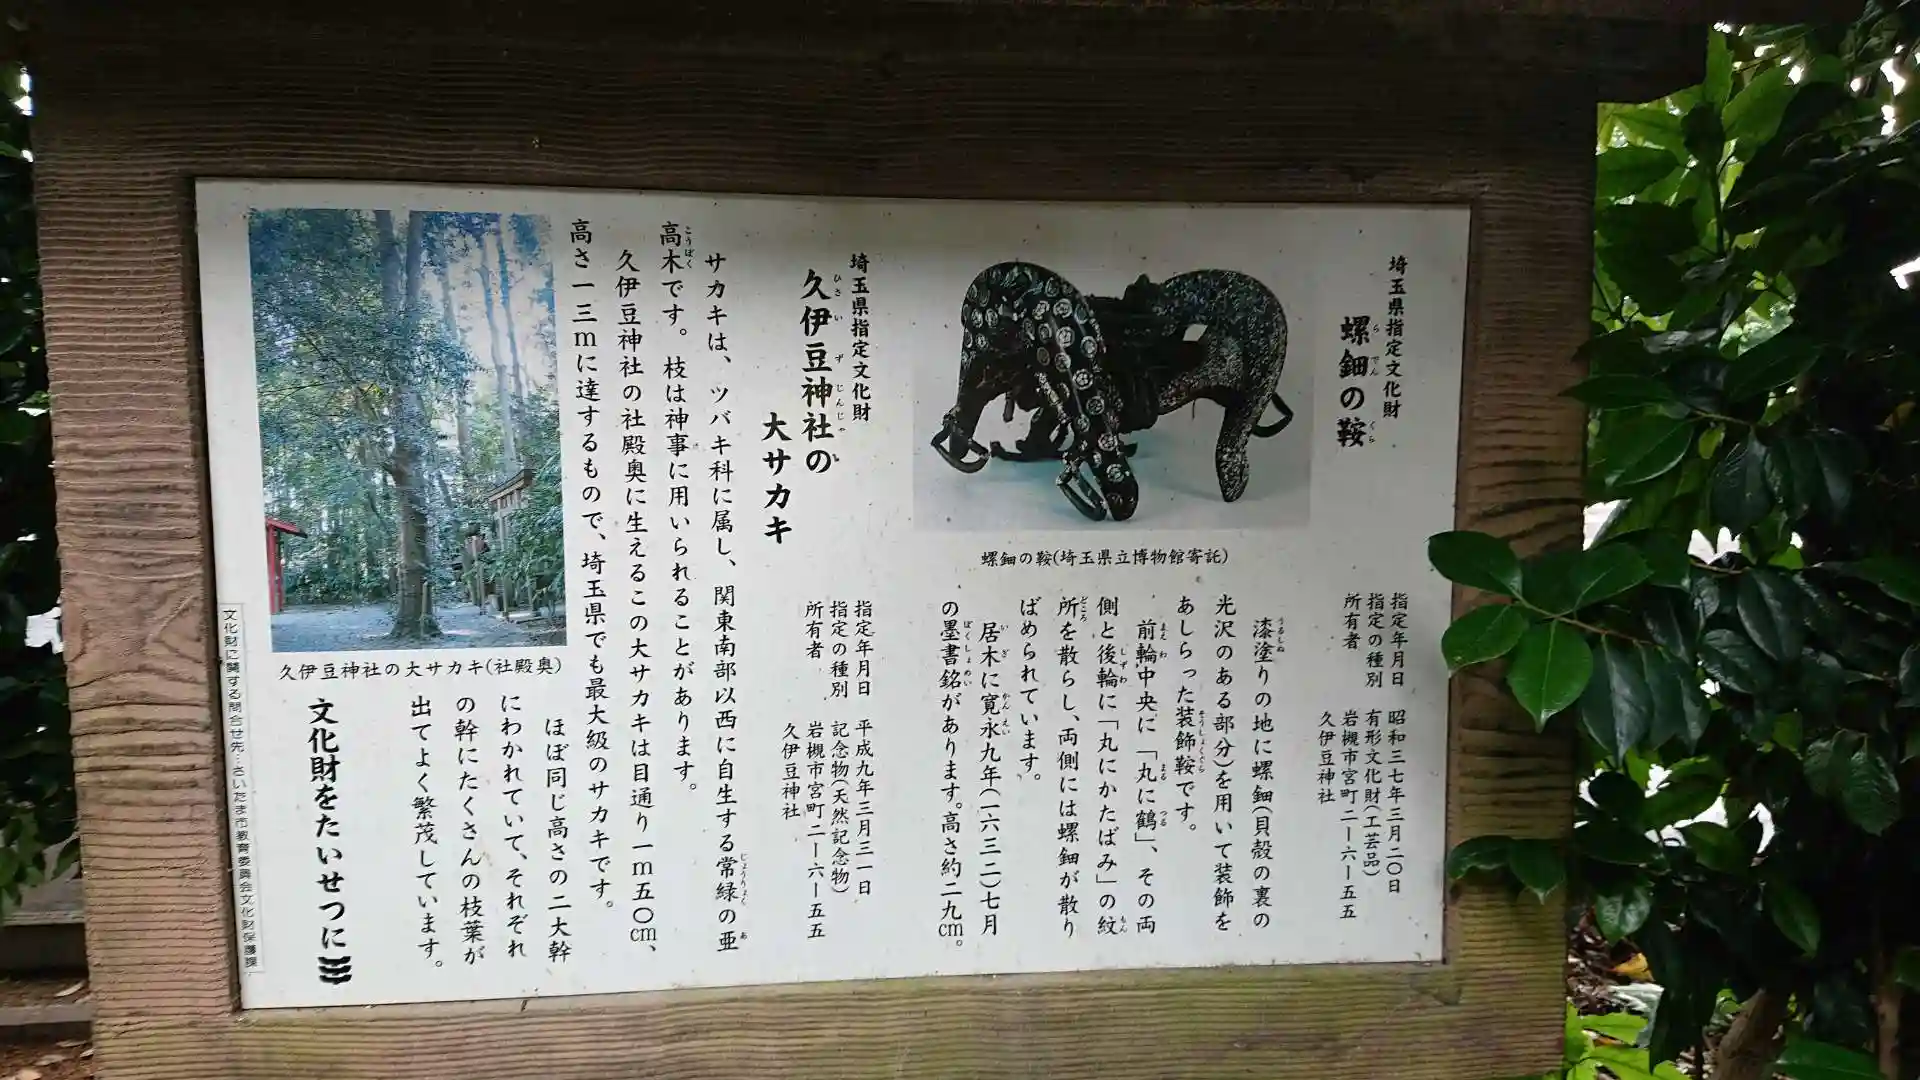 埼玉県指定文化財
螺鈿の鞍
指定年月日　昭和三七年三月二〇日
指定の種別　有形文化財(工芸品)
所有者　岩槻市宮町二ー六ー五五
久伊豆神社
螺鈿の鞍(埼玉県立博物館寄託)
漆塗りの地に螺鈿(貝殻の裏の
光沢のある部分)を用いて装飾を
あしらった装飾鞍です。
前輪中央に「丸に鶴」、その両
側と後輪に「丸にかたばみ」の紋
所を散らし、両側には螺鈿が散り
ばめられています。
居木に寛永九年(一六三二)七月
の墨書銘があります。高さ約二九㎝。
埼玉県指定文化財
久伊豆神社の
大サカキ
指定年月日　平成九年三月三一日
指定の種別　記念物(天然記念物)
所有者　岩槻市宮町二ー六ー五五
久伊豆神社
サカキは、ツバキ科に属し、関東南部以西に自生する常緑の亜
高木です。枝は神事に用いられることがあります。
久伊豆神社の社殿奥に生えるこの大サカキは目通り一m五〇㎝、
高さ一三mに達するもので、埼玉県でも最大級のサカキです。
ほぼ同じ高さの二大幹
にわかれていて、それぞれ
の幹にたくさんの枝葉が
出てよく繁茂しています。
久伊豆神社の大サカキ(社殿奥)
文化財をたいせつに
文化財に関する問合せ先…さいたま市教育委員会文化財保護課